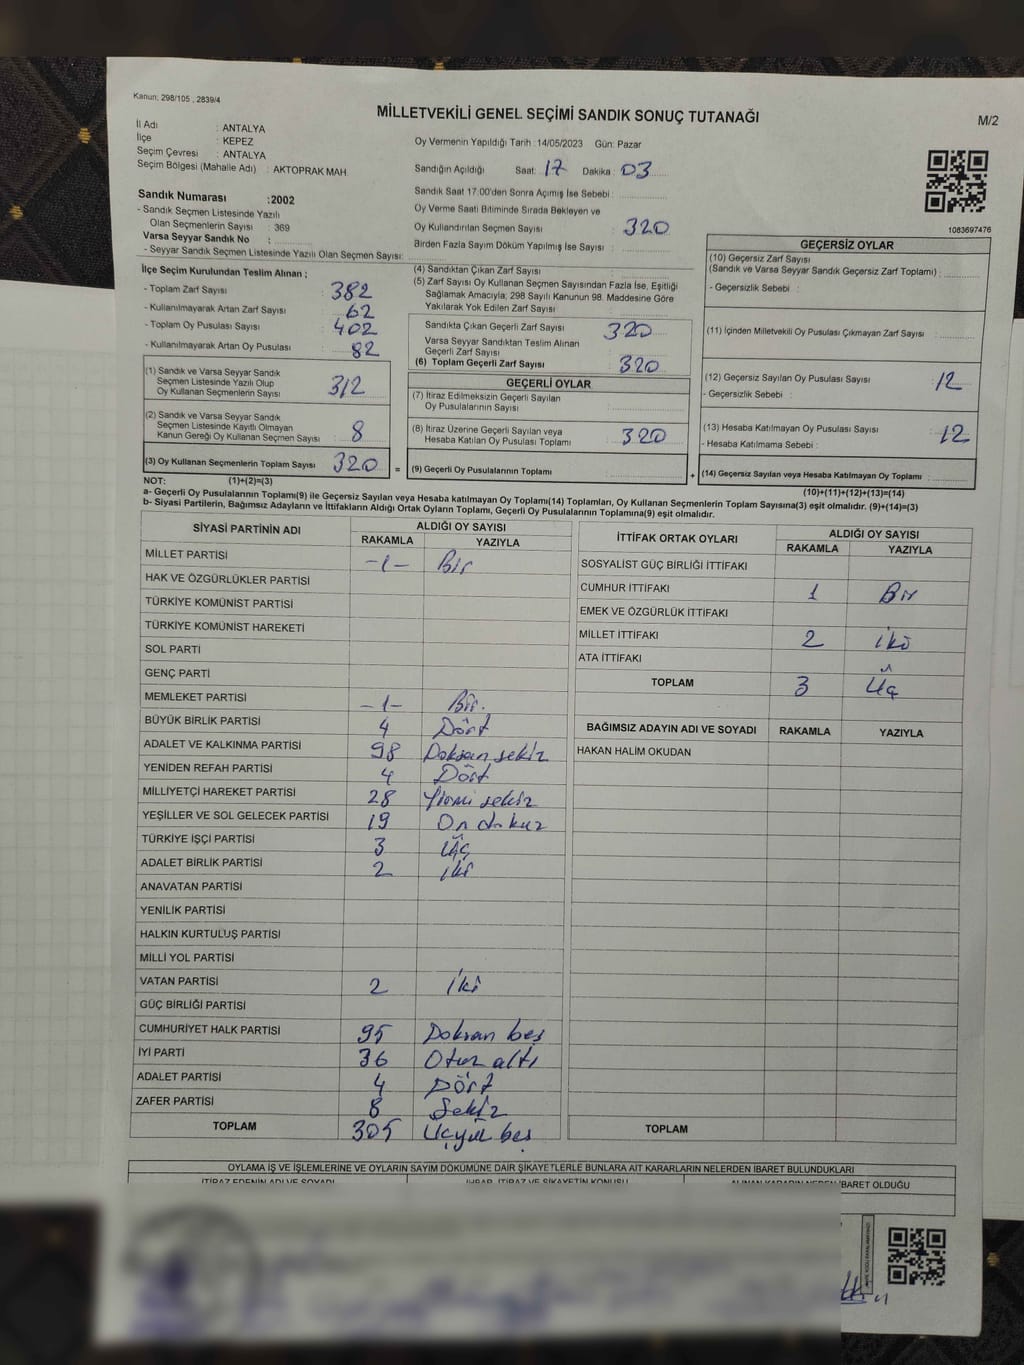 Kanun: 298/105 , 2839/4
MİLLETVEKİLİ GENEL SEÇİMİ SANDIK SONUÇ TUTANAĞI
M/2
İl Adı : ANTALYA
İlçe : KEPEZ
Seçim Çevresi : ANTALYA
Seçim Bölgesi (Mahalle Adı) : AKTOPRAK MAH.
Oy Vermenin Yapıldığı Tarih : 14/05/2023 Gün: Pazar
Sandığın Açıldığı Saat: 17 Dakika : 03
Sandık Saat 17.00'den Sonra Açımış İse Sebebi :
Oy Verme Saati Bitiminde Sırada Bekleyen ve
Oy Kullandırılan Seçmen Sayısı : 320
Birden Fazla Sayım Döküm Yapılmış İse Sayısı :
1083697476
Sandık Numarası :2002
- Sandık Seçmen Listesinde Yazılı
Olan Seçmenlerin Sayısı : 369
Varsa Seyyar Sandık No :
- Seyyar Sandık Seçmen Listesinde Yazılı Olan Seçmen Sayısı:
İlçe Seçim Kurulundan Teslim Alınan ;
- Toplam Zarf Sayısı : 382
- Kullanılmayarak Artan Zarf Sayısı : 62
- Toplam Oy Pusulası Sayısı : 402
- Kullanılmayarak Artan Oy Pusulası : 82
(1) Sandık ve Varsa Seyyar Sandık
Seçmen Listesinde Yazılı Olup
Oy Kullanan Seçmenlerin Sayısı : 312
(2) Sandık ve Varsa Seyyar Sandık
Seçmen Listesinde Kayıtlı Olmayan
Kanun Gereği Oy Kullanan Seçmen Sayısı : 8
(3) Oy Kullanan Seçmenlerin Toplam Sayısı : 320 =
(4) Sandıktan Çıkan Zarf Sayısı :
(5) Zarf Sayısı Oy Kullanan Seçmen Sayısından Fazla İse, Eşitliği
Sağlamak Amacıyla; 298 Sayılı Kanunun 98. Maddesine Göre
Yakılarak Yok Edilen Zarf Sayısı :
Sandıkta Çıkan Geçerli Zarf Sayısı : 320
Varsa Seyyar Sandıktan Teslim Alınan
Geçerli Zarf Sayısı
(6) Toplam Geçerli Zarf Sayısı : 320
GEÇERLİ OYLAR
(7) İtiraz Edilmeksizin Geçerli Sayılan
Oy Pusulalarının Sayısı :
(8) İtiraz Üzerine Geçerli Sayılan veya
Hesaba Katılan Oy Pusulası Toplamı : 320
(9) Geçerli Oy Pusulalarının Toplamı : +
GEÇERSİZ OYLAR
(10) Geçersiz Zarf Sayısı
(Sandık ve Varsa Seyyar Sandık Geçersiz Zarf Toplamı) :
- Geçersizlik Sebebi :
(11) İçinden Milletvekili Oy Pusulası Çıkmayan Zarf Sayısı :
(12) Geçersiz Sayılan Oy Pusulası Sayısı : 12
- Geçersizlik Sebebi :
(13) Hesaba Katılmayan Oy Pusulası Sayısı : 12
- Hesaba Katılmama Sebebi :
(14) Geçersiz Sayılan veya Hesaba Katılmayan Oy Toplamı :
NOT: (1)+(2)=(3) (10)+(11)+(12)+(13)=(14)
a- Geçerli Oy Pusulalarının Toplamı(9) ile Geçersiz Sayılan veya Hesaba katılmayan Oy Toplamı(14) Toplamları, Oy Kullanan Seçmenlerin Toplam Sayısına(3) eşit olmalıdır. (9)+(14)=(3)
b- Siyasi Partilerin, Bağımsız Adayların ve İttifakların Aldığı Ortak Oyların Toplamı, Geçerli Oy Pusulalarının Toplamına(9) eşit olmalıdır.
SİYASİ PARTİNİN ADI ALDIĞI OY SAYISI
RAKAMLA YAZIYLA
MİLLET PARTİSİ -1- Bir
HAK VE ÖZGÜRLÜKLER PARTİSİ
TÜRKİYE KOMÜNİST PARTİSİ
TÜRKİYE KOMÜNİST HAREKETİ
SOL PARTİ
GENÇ PARTİ
MEMLEKET PARTİSİ -1- Bir.
BÜYÜK BİRLİK PARTİSİ 4 Dört
ADALET VE KALKINMA PARTİSİ 98 Doksan sekiz
YENİDEN REFAH PARTİSİ 4 Dört
MİLLİYETÇİ HAREKET PARTİSİ 28 Yirmi sekiz
YEŞİLLER VE SOL GELECEK PARTİSİ 19 On dokuz
TÜRKİYE İŞÇİ PARTİSİ 3 Üç
ADALET BİRLİK PARTİSİ 2 iki
ANAVATAN PARTİSİ
YENİLİK PARTİSİ
HALKIN KURTULUŞ PARTİSİ
MİLLİ YOL PARTİSİ
VATAN PARTİSİ 2 İki
GÜÇ BİRLİĞİ PARTİSİ
CUMHURİYET HALK PARTİSİ 95 Doksan beş
İYİ PARTİ 36 Otuz altı
ADALET PARTİSİ 4 Dört
ZAFER PARTİSİ 8 Sekiz
TOPLAM 305 Üçyüz beş
İTTİFAK ORTAK OYLARI ALDIĞI OY SAYISI
RAKAMLA YAZIYLA
SOSYALİST GÜÇ BİRLİĞİ İTTİFAKI
CUMHUR İTTİFAKI 1 Bir
EMEK VE ÖZGÜRLÜK İTTİFAKI
MİLLET İTTİFAKI 2 iki
ATA İTTİFAKI
TOPLAM 3 Üç
BAĞIMSIZ ADAYIN ADI VE SOYADI RAKAMLA YAZIYLA
HAKAN HALİM OKUDAN
TOPLAM
OYLAMA İŞ VE İŞLEMLERİNE VE OYLARIN SAYIM DÖKÜMÜNE DAİR ŞİKAYETLERLE BUNLARA AİT KARARLARIN NELERDEN İBARET BULUNDUKLARI
İTİRAZ EDENİN ADI VE SOYADI İHBAR, İTİRAZ VE ŞİKAYETİN KONUSU ALINAN KARARIN NEDEN İBARET OLDUĞU